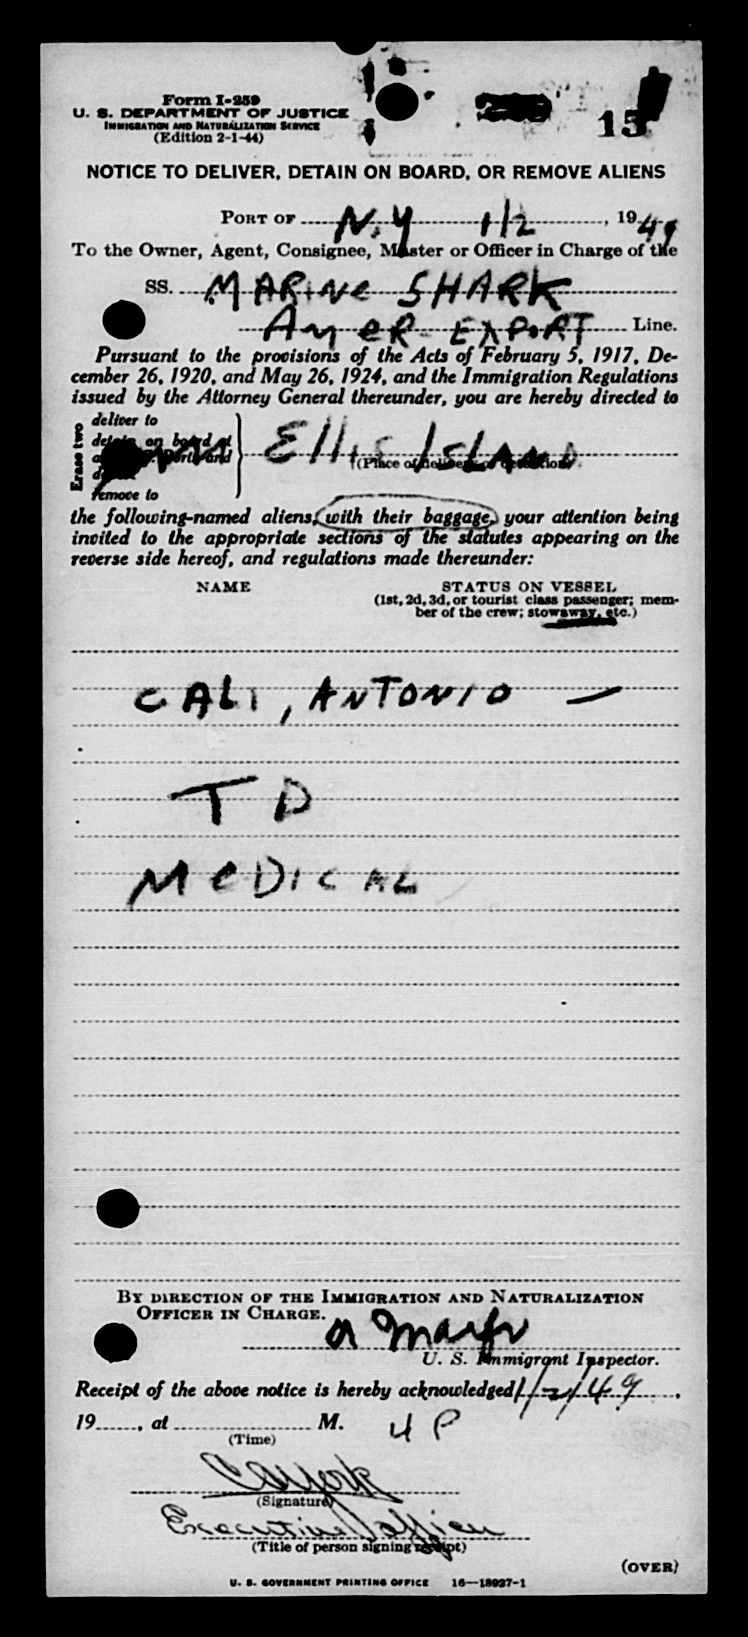 Form I-259
U. S. DEPARTMENT OF JUSTICE
IMMIGRATION AND NATURALIZATION SERVICE
(Edition 2-1-44)
15
NOTICE TO DELIVER, DETAIN ON BOARD, OR REMOVE ALIENS
PORT OF N.Y 1/2, 1949
To the Owner, Agent, Consignee, Master or Officer in Charge of the
SS. MARINE SHARK
AMER- EXPORT Line.
Pursuant to the provisions of the Acts of February 5, 1917, De-
cember 26, 1920, and May 26, 1924, and the Immigration Regulations
issued by the Attorney General thereunder, you are hereby directed to
Erase two
deliver to
detain on board at
remove to
Ellis Island
(Place of delivery or detention)
the following-named aliens, with their baggage, your attention being
invited to the appropriate sections of the statutes appearing on the
reverse side hereof, and regulations made thereunder:
NAME STATUS ON VESSEL
(1st, 2d, 3d, or tourist class passenger; mem-
ber of the crew; stowaway, etc.)
CALI, ANTONIO —
TD
MEDICAL
BY DIRECTION OF THE IMMIGRATION AND NATURALIZATION
OFFICER IN CHARGE.
U. S. Immigrant Inspector.
Receipt of the above notice is hereby acknowledged 1/2/49,
19, at M. 4 P
(Time)
(Signature)
Executive Officer
(Title of person signing receipt)
(OVER)
U. S. GOVERNMENT PRINTING OFFICE 16—18927-1